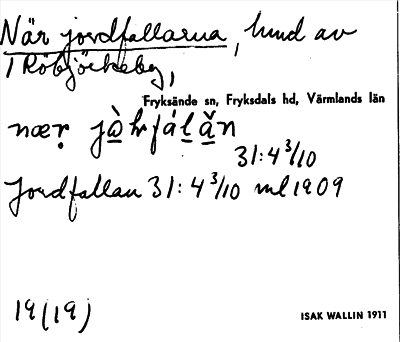 När jordfallarna, lund av
Fryksände sn, Fryksdals hd, Värmlands län
nær
31:4 3/10
Jordfallan 31:4 3/10 ml 1909
19(19)
ISAK WALLIN 1911